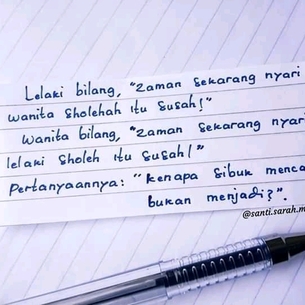 Lelaki bilang, "Zaman sekarang nyari
wanita sholehah itu susah!"
Wanita bilang, "Zaman sekarang nyar
lelaki sholeh itu susah!"
Pertanyaannya: "kenapa sibuk menca
bukan menjadi?".
@santi.sarah.m